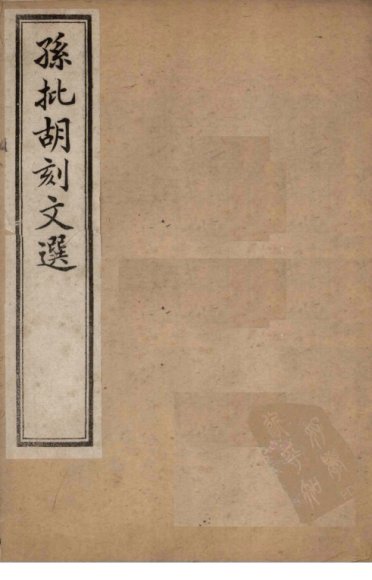 孫批胡刻文選